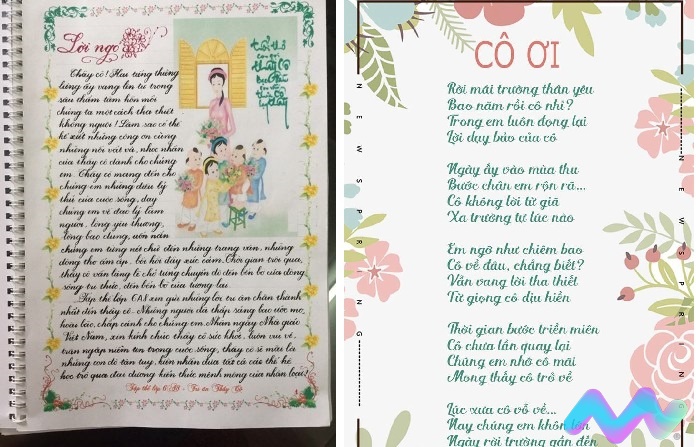 Lời ngỏ
Thầy cô! Hai tiếng thiêng
liêng ấy vang lên từ trong
sâu thẳm tâm hồn mỗi
chúng ta một cách tha thiết
không nguôi! Làm sao có thể
kể xiết những công ơn cùng
những nỗi vất vả, nhọc nhằn
của thầy cô dành cho chúng
em. Thầy cô mang đến cho
chúng em những điều lý
thú của cuộc sống, dạy
chúng em về đạo lý làm
người, lòng yêu thương,
lòng bao dung, uốn nắn
chúng em từng nét chữ đến những trang văn, những
dòng thơ ấm áp, bồi hồi đầy xúc cảm. Thời gian trôi qua,
thầy cô vẫn lặng lẽ chở từng chuyến đò đến bên bờ của dòng
sông tri thức, đến bến bờ của tương lai.
Tập thể lớp 6A8 xin gửi những lời tri ân chân thành
nhất đến thầy cô. Những người đã thắp sáng bao ước mơ,
hoài bão, chắp cánh cho chúng em. Nhân ngày Nhà giáo
Việt Nam, xin kính chúc thầy cô sức khoẻ, luôn vui vẻ,
tràn ngập niềm tin trong cuộc sống, thầy cô sẽ mãi là
những con đò tận tuỵ, luôn nhẫn đưa tất cả các thế hệ
học trò qua đại dương kiến thức mênh mông của nhân loại!
Tập thể lớp 6A8 - Tri ân Thầy Cô
CÔ ƠI
Rời mái trường thân yêu
Bao năm rồi cô nhỉ?
Trong em luôn đọng lại
Lời dạy bảo của cô
Ngày ấy vào mùa thu
Bước chân em rộn rã...
Cô không lời từ giã
Xa trường tự lúc nào
Em ngỡ như chiêm bao
Cô về đâu, chẳng biết?
Vẫn vang lời tha thiết
Từ giọng cô dịu hiền
Thời gian bước triền miên
Cô chưa lần quay lại
Chúng em nhớ cô mãi
Mong thấy cô trở về
Lúc xưa cô vỗ về...
Nay chúng em khôn lớn
Ngày rời trường gần đến
NEW SPRING
NEW SPRING